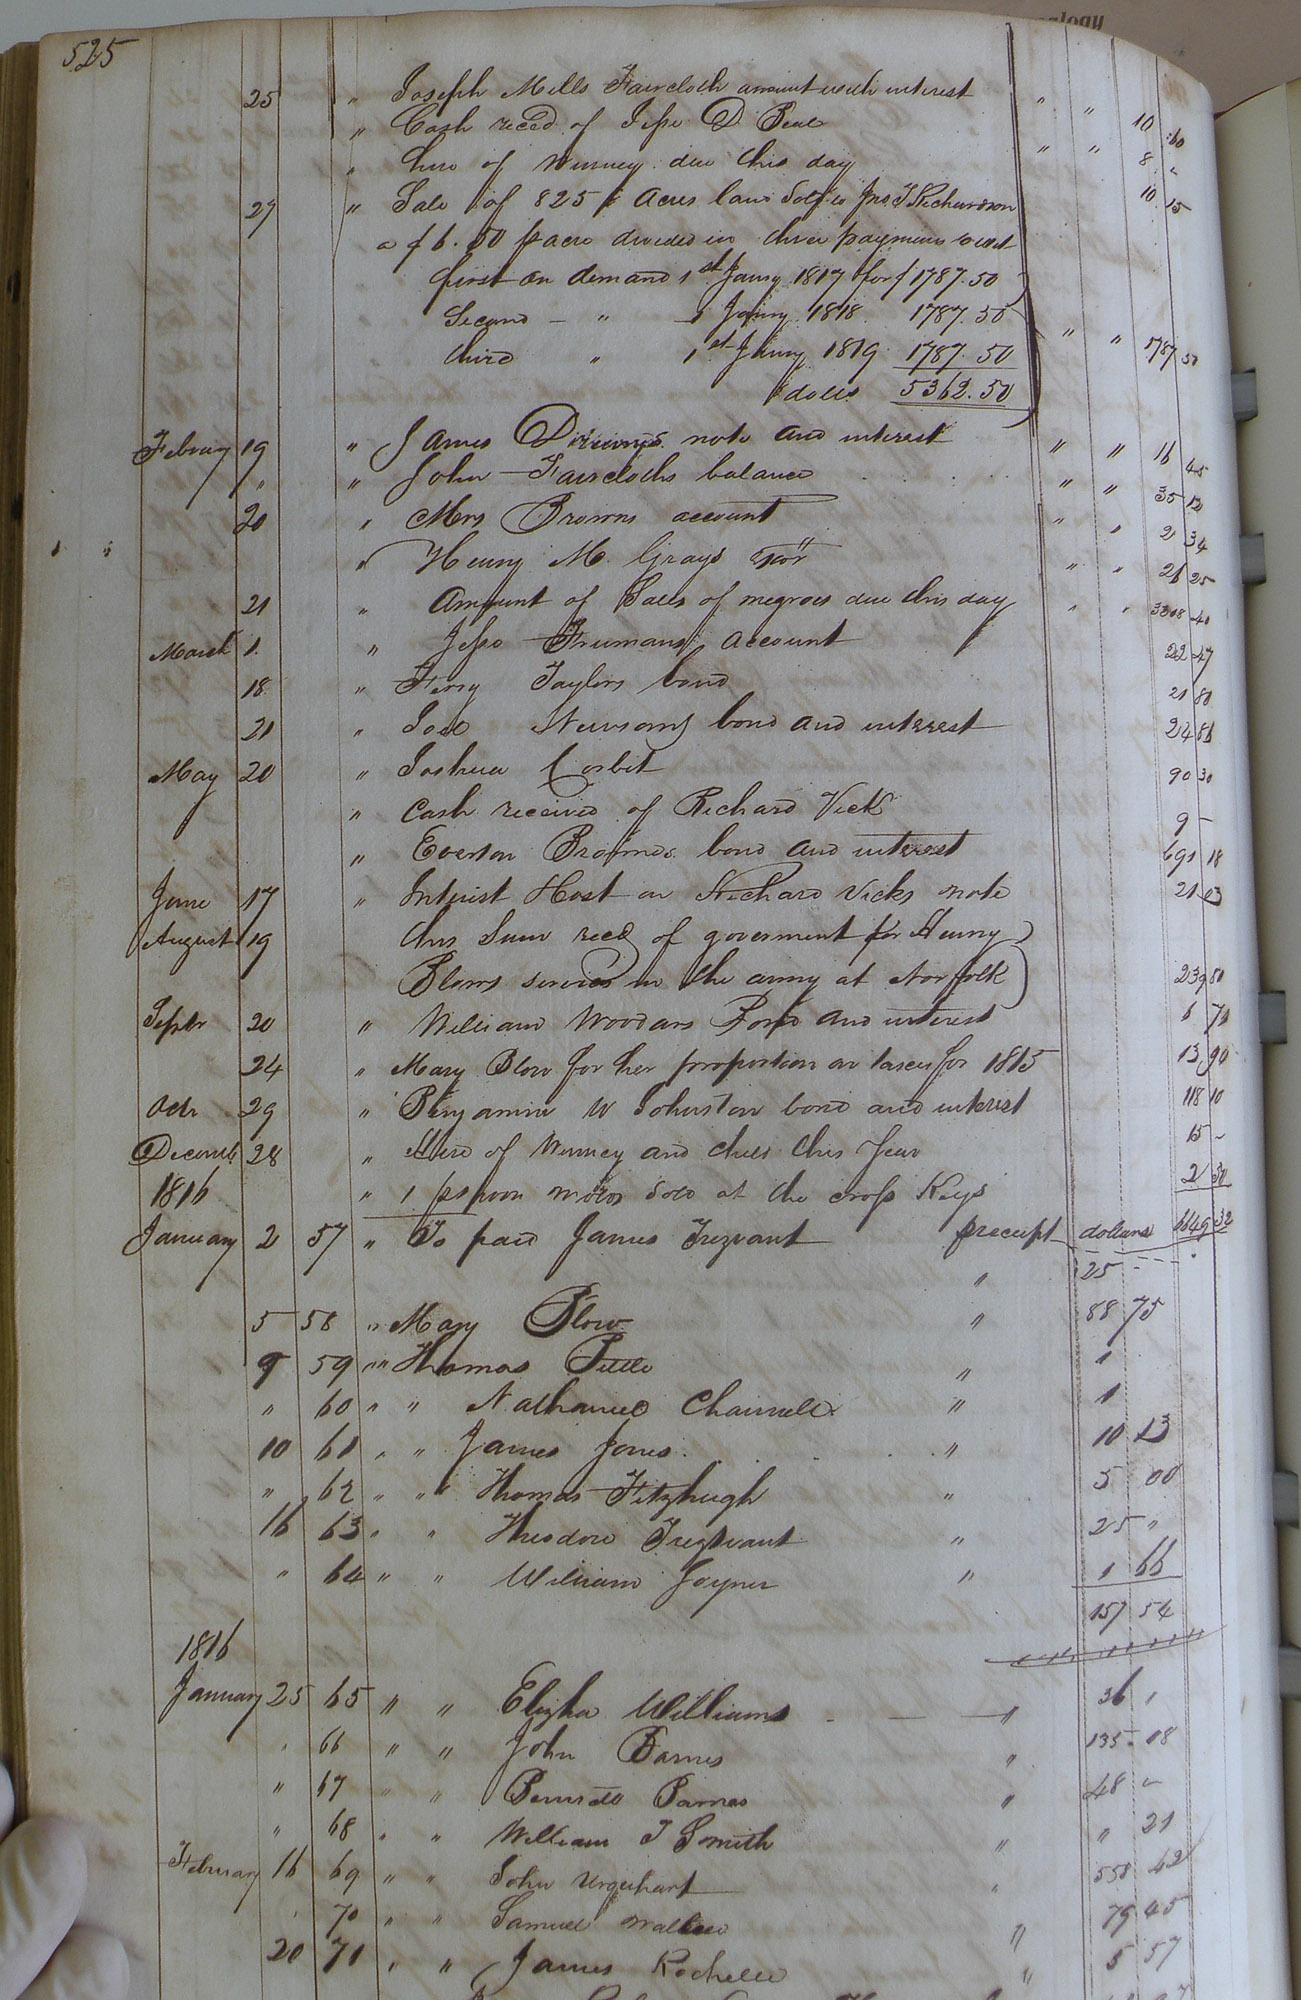 alogy
525
25 " Joseph Mills Faircloth amount with interest " " 10 60
" Cash reced of Jesse D Beal " " 8 "
" hire of Winney due this day 10 15
27 " Sale of 825 Acres land Sold to Jno T Richardson
a $6.50 p acre divided in three payments
first on demand 1st Jany 1817 for $1787.50
Second - " 1 Jany 1818 1787.50
third " 1st Jany 1819 1787.50 " " 1787 50
dolls 5362.50
Februay 19 " James note and interest " " 16 45
" " John Faircloths balance " " 35 12
20 " Mrs Browns account " " 2 34
" Henry M. Grays " " 26 25
21 " Amount of Sales of negroes due this day " " 3308 40
March 1. " Jesse Trumans account 22 47
18 " Taylors bond 21 80
21 " Joel Newsoms bond and interest 24 86
May 20 " Joshua Corbit 90 30
" Cash received of Richard Vick 9 -
" Everton bond and interest 691 18
June 17 " Interist on Richard Vicks note 21 03
August 19 this Sum reced of goverment for Henry
Blows services in the army at Norfolk 239 80
Septr 20 " William Woodars Bond and interest 6
24 " Mary Blow for her proportion on taxes for 1815 13 90
Octr 29 " Benjamin W Johnston bond and interest 118 10
Decemb. 28 " Hire of Winney and chils this Year 15 -
1816 " 1 Sold at the cross Keys 2 50
January 2 57 " To paid James Trezvant preceipt dollars 6649 32
" 25 -
5 58 " Mary Blow " 88 75
9 59 " " Thomas " 1
" 60 " " Nathaniel " 1
10 61 " " James Jones " 10 13
" 62 " " Thomas Fitzhugh " 5 00
16 63 " " Theodore Trezvant " 25 "
" 64 " " William Joyner " 1 66
157 54
1816
January 25 65 " " Elizha Williams " 36 "
" 66 " " John Barnes " 135 08
" 67 " " Barnes " 48 "
" 68 " " William T Smith " " 21
February 16 69 " " John Urquhart " 558 42
" 70 " " Samuel " 79 45
20 71 " " James Rochelle " 5 57